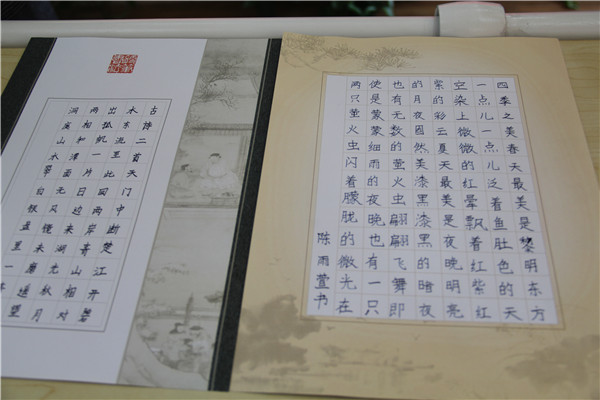 四季之美春天最美是黎明东方
一点儿一点儿泛着鱼肚色的天
空染上微微的红晕飘着红紫红
紫的彩云夏天最美是夜晚明亮
的月夜固然美漆黑漆黑的暗夜
也有无数的萤火虫翩翩飞舞即
使是蒙蒙细雨的夜晚也有一只
两只萤火虫闪着朦胧的微光在
陈雨萱书
古诗二首天门中断楚江开碧
水东流至此回两岸青山相对
出孤帆一片日边来湖光秋月
两相和潭面无风镜未磨遥望
洞庭山水翠白银盘里一